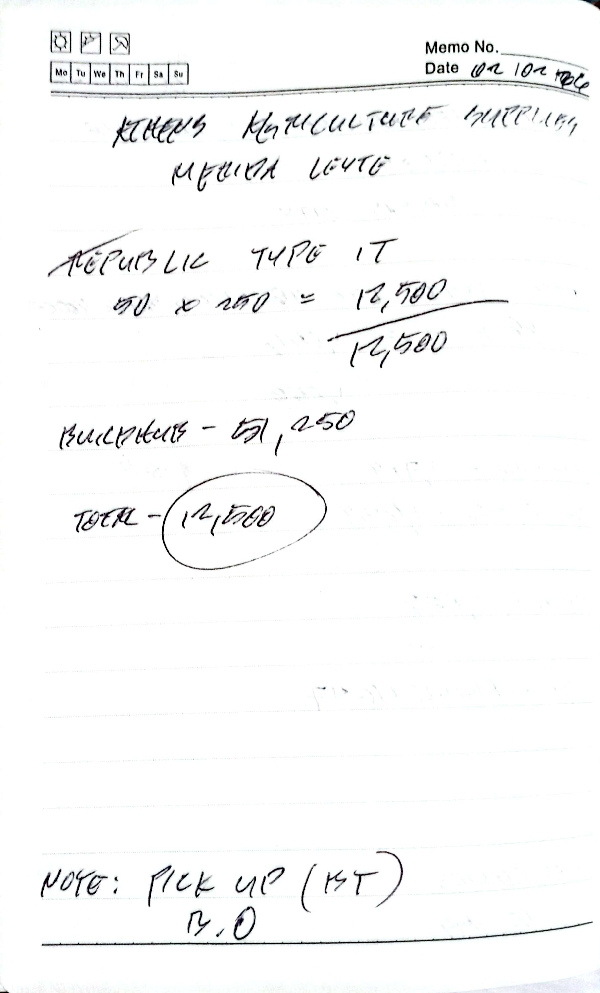 Memo No.
Date 02/02
Mo Tu We Th Fr Sa Su
ATHENS AGRICULTURE SUPPLIES
MERIDA LEYTE
REPUBLIC TYPE 1T
50 x 250 = 12,500
12,500
- 51,250
TOTAL - 12,500
NOTE: PICK UP (BT)
B.O